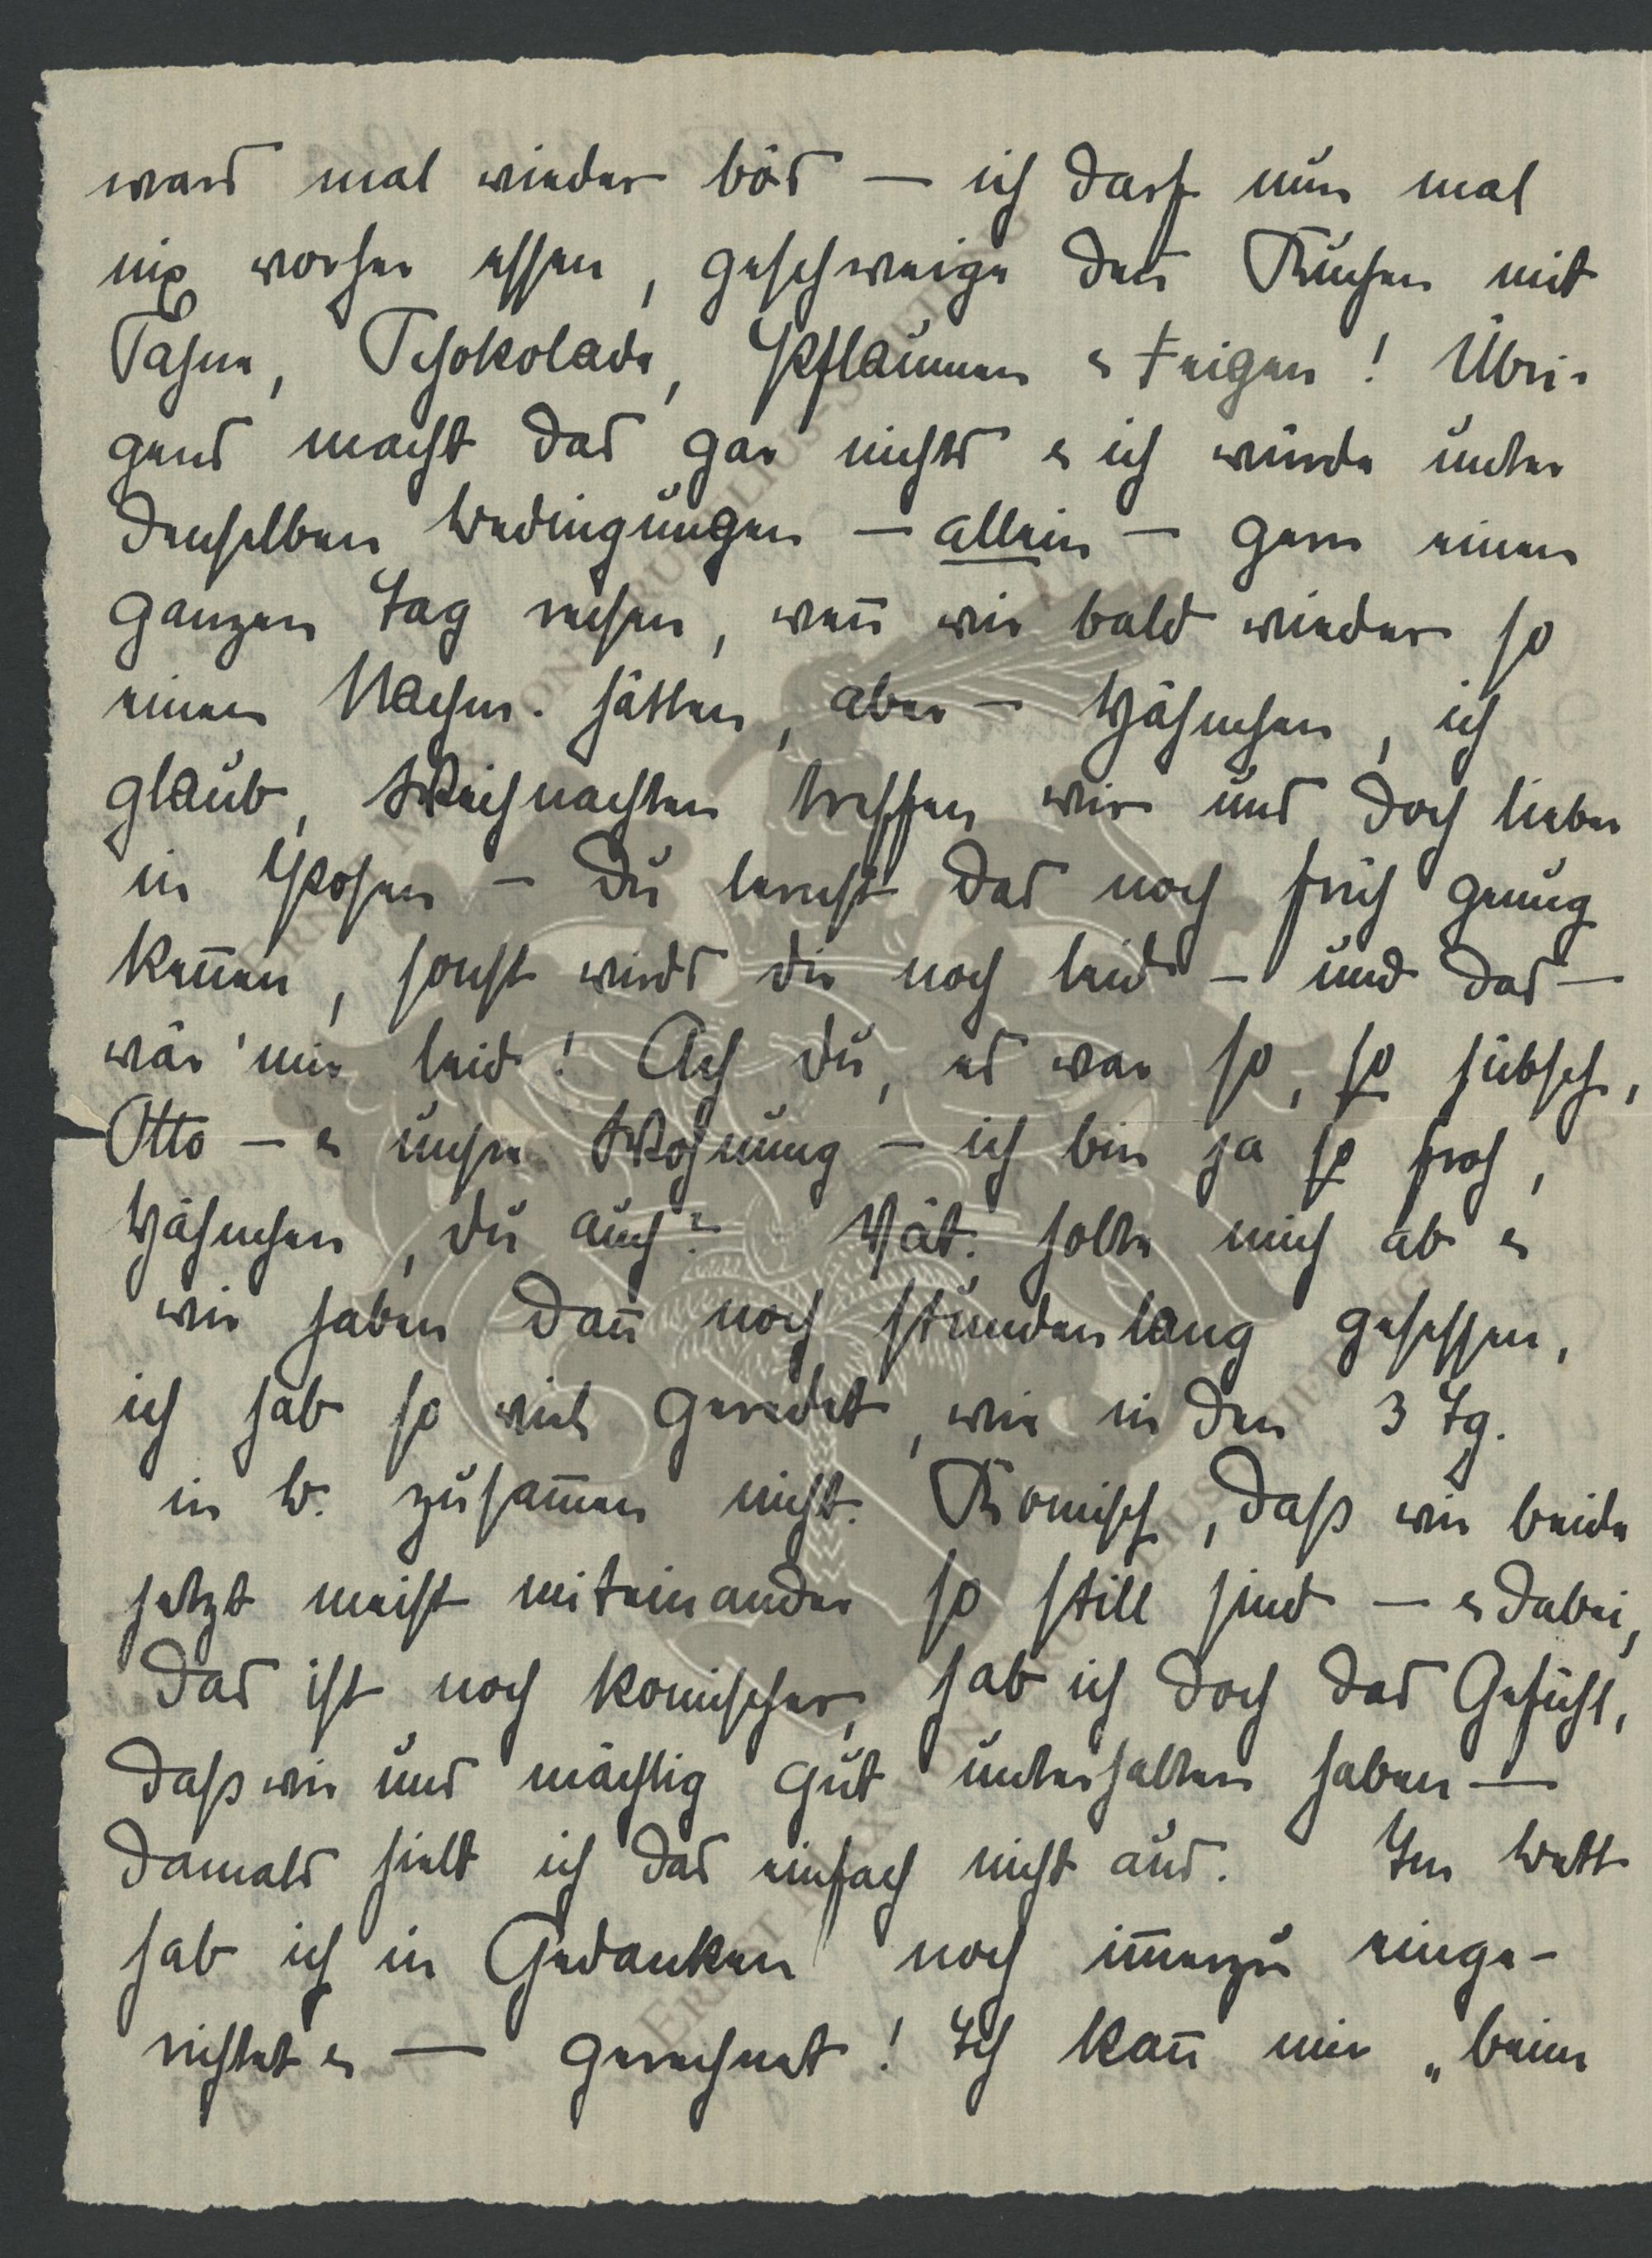 wars mal wieder bös — ich darf nun mal
nix vorher essen, geschweige denn Kuchen mit
Sahne, Schokolade, Pflaumen & Feigen! Übri-
gens macht das gar nichts & ich würde unter
denselben Bedingungen — allein — gern einen
ganzen Tag reisen, wenn wir bald wieder so
einen Nachm. hätten, aber — Hähnchen, ich
glaub, Weihnachten treffen wir uns doch lieber
in Posen — Du lernst das noch früh genug
kennen, sonst wirds dir noch leid — und das —
wär' mir leid! Ach du, es war so, so hübsch,
Otto — & unsre Wohnung — ich bin ja so froh,
Hähnchen, du auch? Vat. holte mich ab &
wir haben dann noch stundenlang gesessen,
ich hab so viel geredet, wie in den 3 Tg.
in B. zusammen nicht. Komisch, daß wir beide
jetzt meist miteinander so still sind — & dabei,
das ist noch komischer, hab ich doch das Gefühl,
daß wir uns mächtig gut unterhalten haben —
damals hielt ich das einfach nicht aus. Im Bett
hab ich in Gedanken noch immerzu einge-
richtet & — gerechnet! Ich kann mir „beim